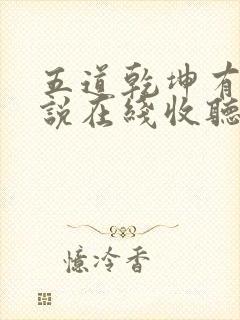 五道乾坤有
說在綫收聽
憶冷香